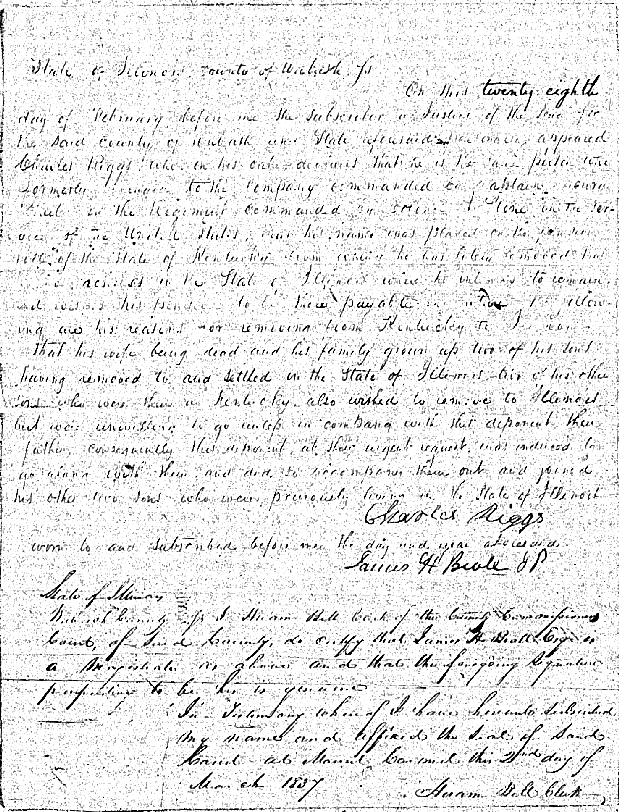 State of Illinois County of Wabash Ss
On this twenty eighth
day of February before me the subscriber a Justice of the for
the said County of Wabash and State aforesaid appeared
Charles Riggs who on his oath declares that he is the same person who
formerly to the Company commanded by Captain
in the Regiment commanded by in the ser-
vice of the United States, that his name was placed on the pension
roll of the State of Kentucky from whence he has lately removed that
he resides in the State of Illinois where he intends to remain
and wishes his pension to be there payable in The follow-
ing are his reasons for removing from Kentucky to
that his wife being dead and his family grown up two of his sons
having removed to and settled in the State of Illinois two of his other
sons who were then in Kentucky also wished to remove to Illinois
but were unwilling to go unless in company with this deponent their
father, consequently this deponent, at their urgent request, was induced to
go along with them and did so accompany them out and joined
his other two sons who were previously living in the State of Illinois
Charles Riggs
Sworn to and subscribed before me the day and year aforesaid
James H Beall JP
State of Illinois
Wabash County Ss I Hiram Bell Clerk of the County Commissioners
Court, of said County, do certify that James H Beall Esqr is
a Magistrate as above and that the foregoing signature
purporting to be his is genuine
In Testimony whereof I have hereunto subscribed
my name and affixed the seal of said
Court at Mount Carmel this 2nd day of
March 1837
Hiram Bell Clerk